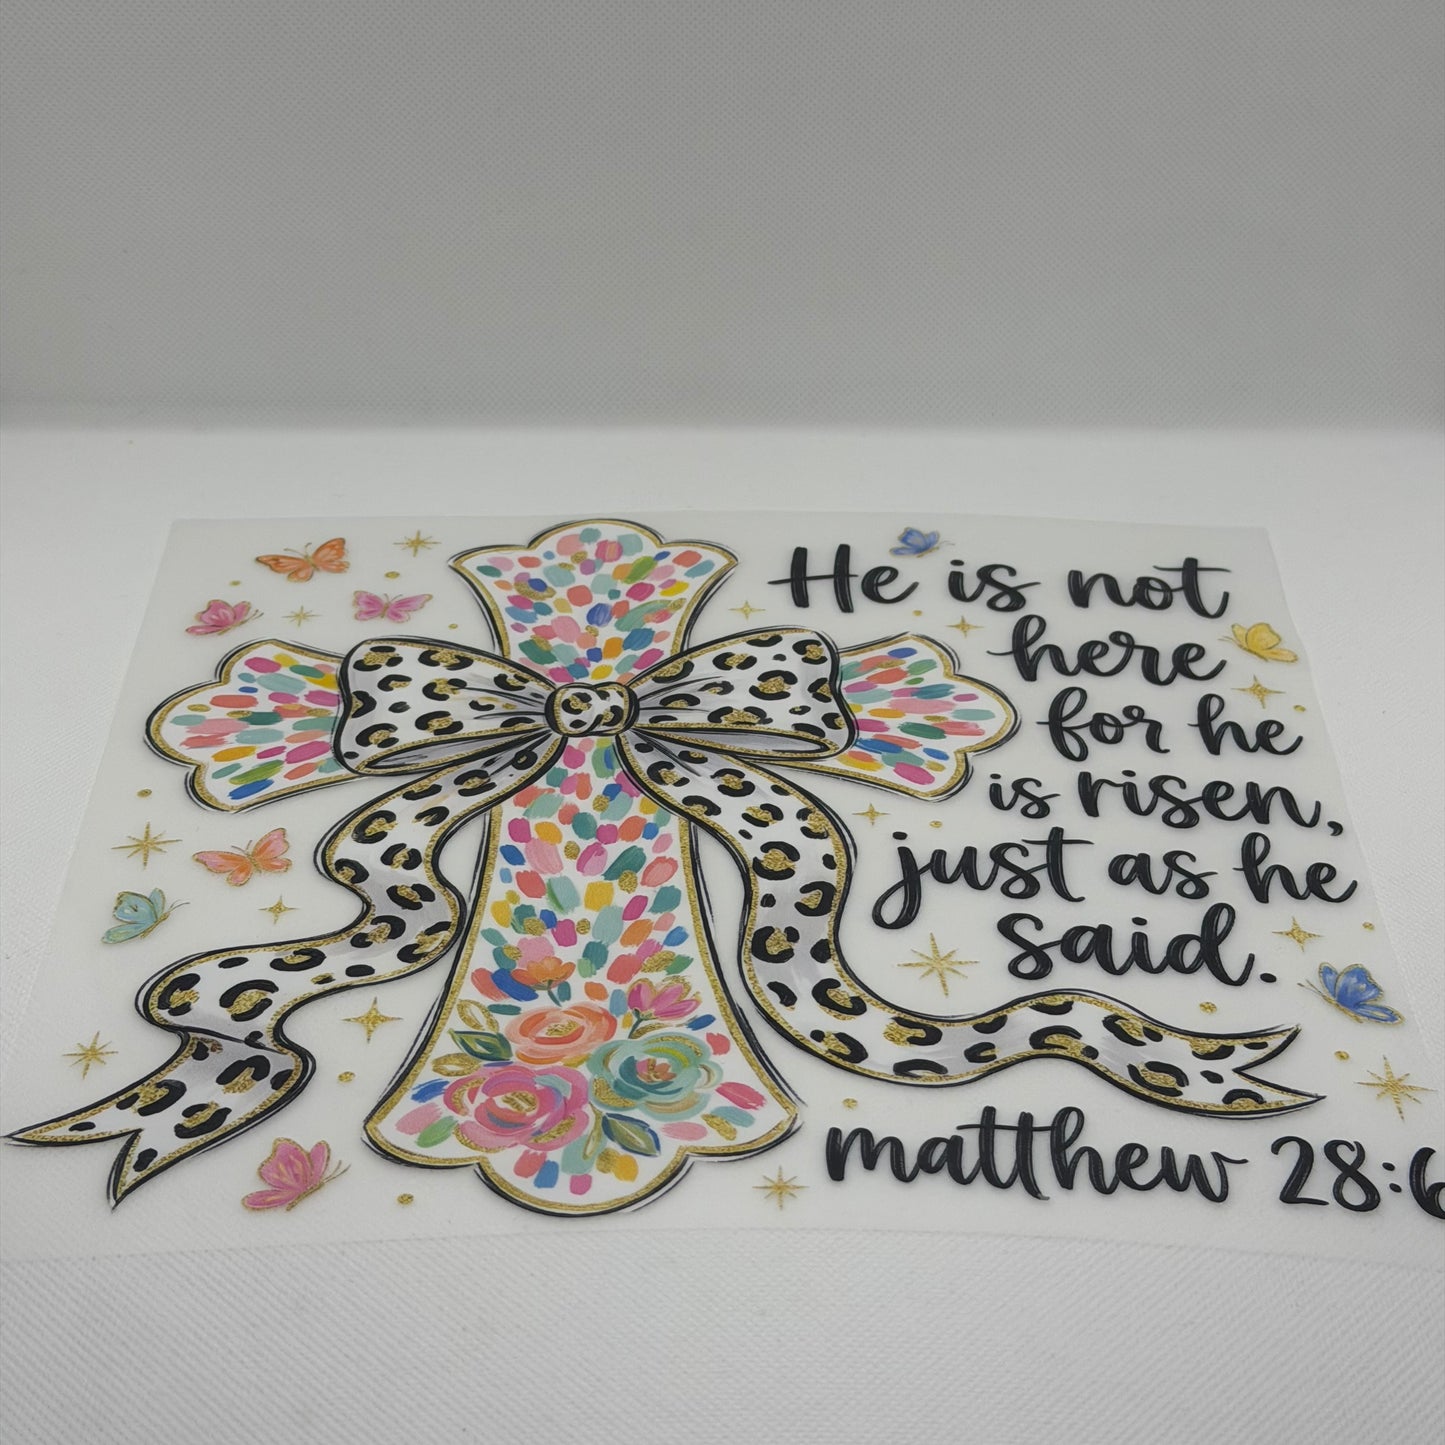 He is not
here
for he
is risen,
just as he
said.
matthew 28:6